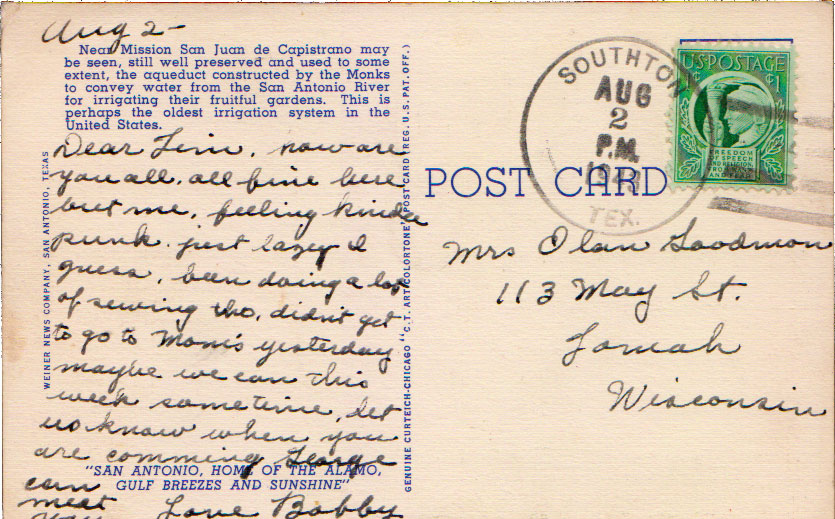 Aug 2-
Near Mission San Juan de Capistrano may
be seen, still well preserved and used to some
extent, the aqueduct constructed by the Monks
to convey water from the San Antonio River
for irrigating their fruitful gardens. This is
perhaps the oldest irrigation system in the
United States.
Dear Fern, how are
you all, all fine here
but me, feeling kinda
punk. just lazy I
guess, been doing a lot
of sewing tho, didn't get
to go to Mom's yesterday
maybe we can this
week sometime, let
us know when you
are comming George
"SAN ANTONIO, HOME OF THE ALAMO,
GULF BREEZES AND SUNSHINE"
can
meet
you Love Bobby
WEINER NEWS COMPANY, SAN ANTONIO, TEXAS
GENUINE CURTEICH-CHICAGO "C.T. ART-COLORTONE" POST CARD (REG. U.S. PAT. OFF.)
POST CARD
SOUTHTON
AUG
2
P.M.
TEX.
U.S. POSTAGE
1¢ ¢1
FREEDOM
OF SPEECH
AND RELIGION
FROM WANT
AND FEAR
Mrs Olan Goodman
113 May St.
Tomah
Wisconsin